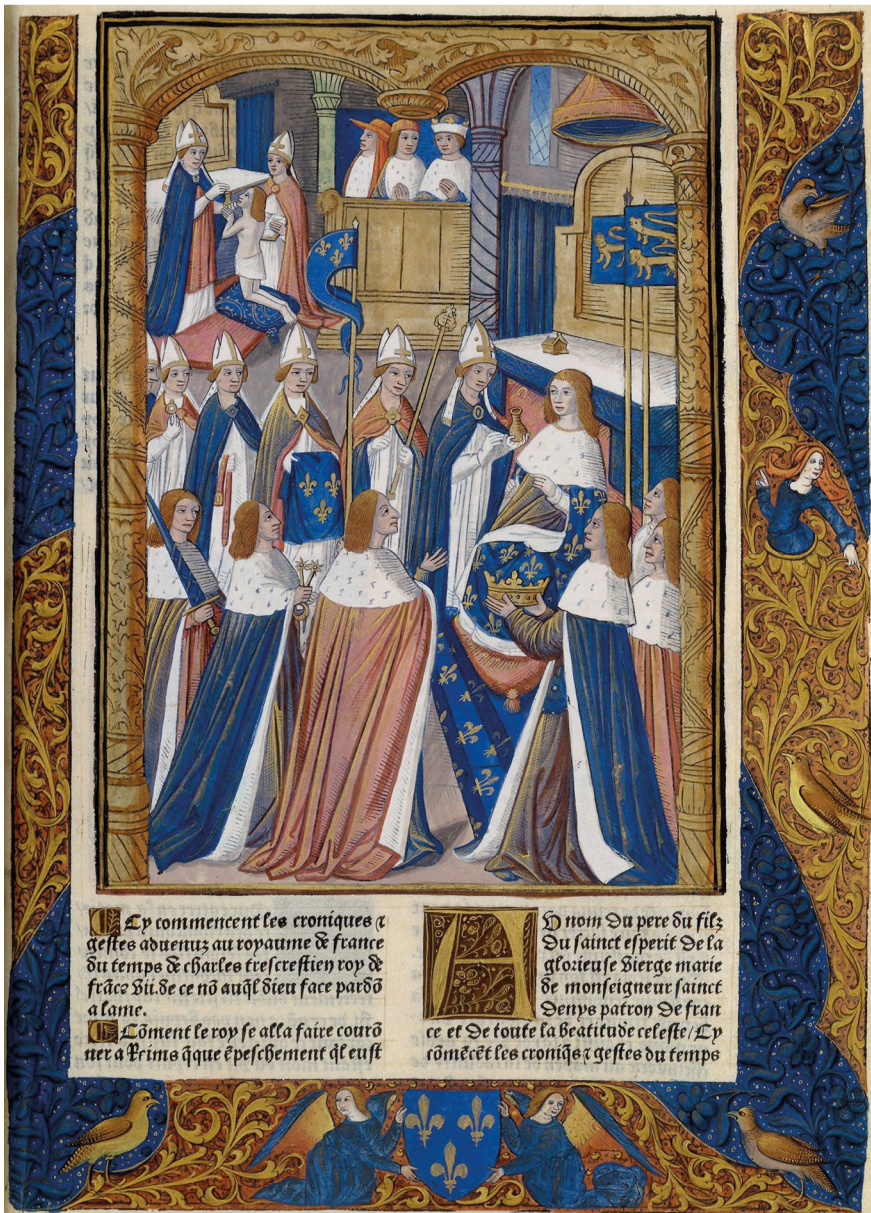 Cy commencent les croniques ⁊
gestes aduenuz au royaume de france
du temps de charles trescrestien roy de
frãce vii. de ce nõ auq̃l dieu face pardõ
a lame.
Cõment le roy se alla faire courõ
ner a Reims q̃que ẽpeschement q̃l eust
AV nom du pere du filz
du sainct esperit de la
glorieuse vierge marie
de monseigneur sainct
Denys patron de fran
ce et de toute la beatitude celeste/Cy
cõmẽcẽt les croniq̃s ⁊ gestes du temps